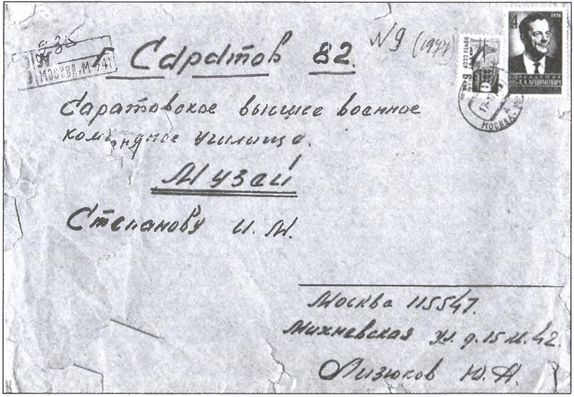 г. Саратов 82. N9 (1977)
Саратовское высшее военное
командное училище.
Музей
Степанову И. М.
Москва 115547.
Михневская ул. д. 15 к. 42.
Лизюков Ю. А.
МОСКВА
4
1974
ПОЧТА СССР
МОСКВА